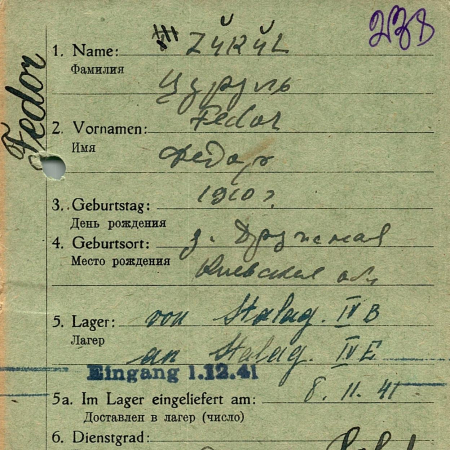 238
Fedor
1. Name: ZŭRŭL
Фамилия Цуруль
2. Vornamen: Fedor
Имя Федор
3. Geburtstag: 1910 г.
День рождения
4. Geburtsort: д. Дружная
Место рождения Киевская обл
5. Lager: von Stalag. IV B
Лагер an Stalag. IV E
Eingang 1.12.41
5a. Im Lager eingeliefert am: 8. 11. 41.
Доставлен в лагер (число)
6. Dienstgrad: